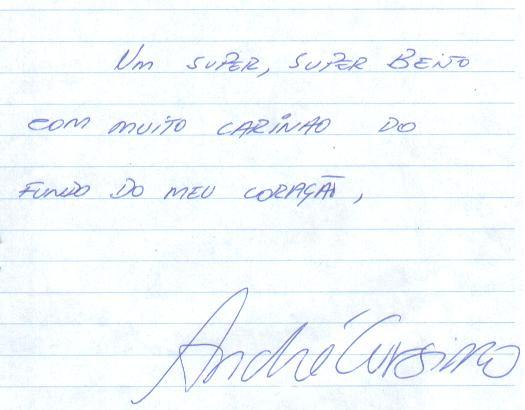 Um SUPER, SUPER BEIJO
COM MUITO CARINHO DO
FUNDO DO MEU CORAÇÃO,
André